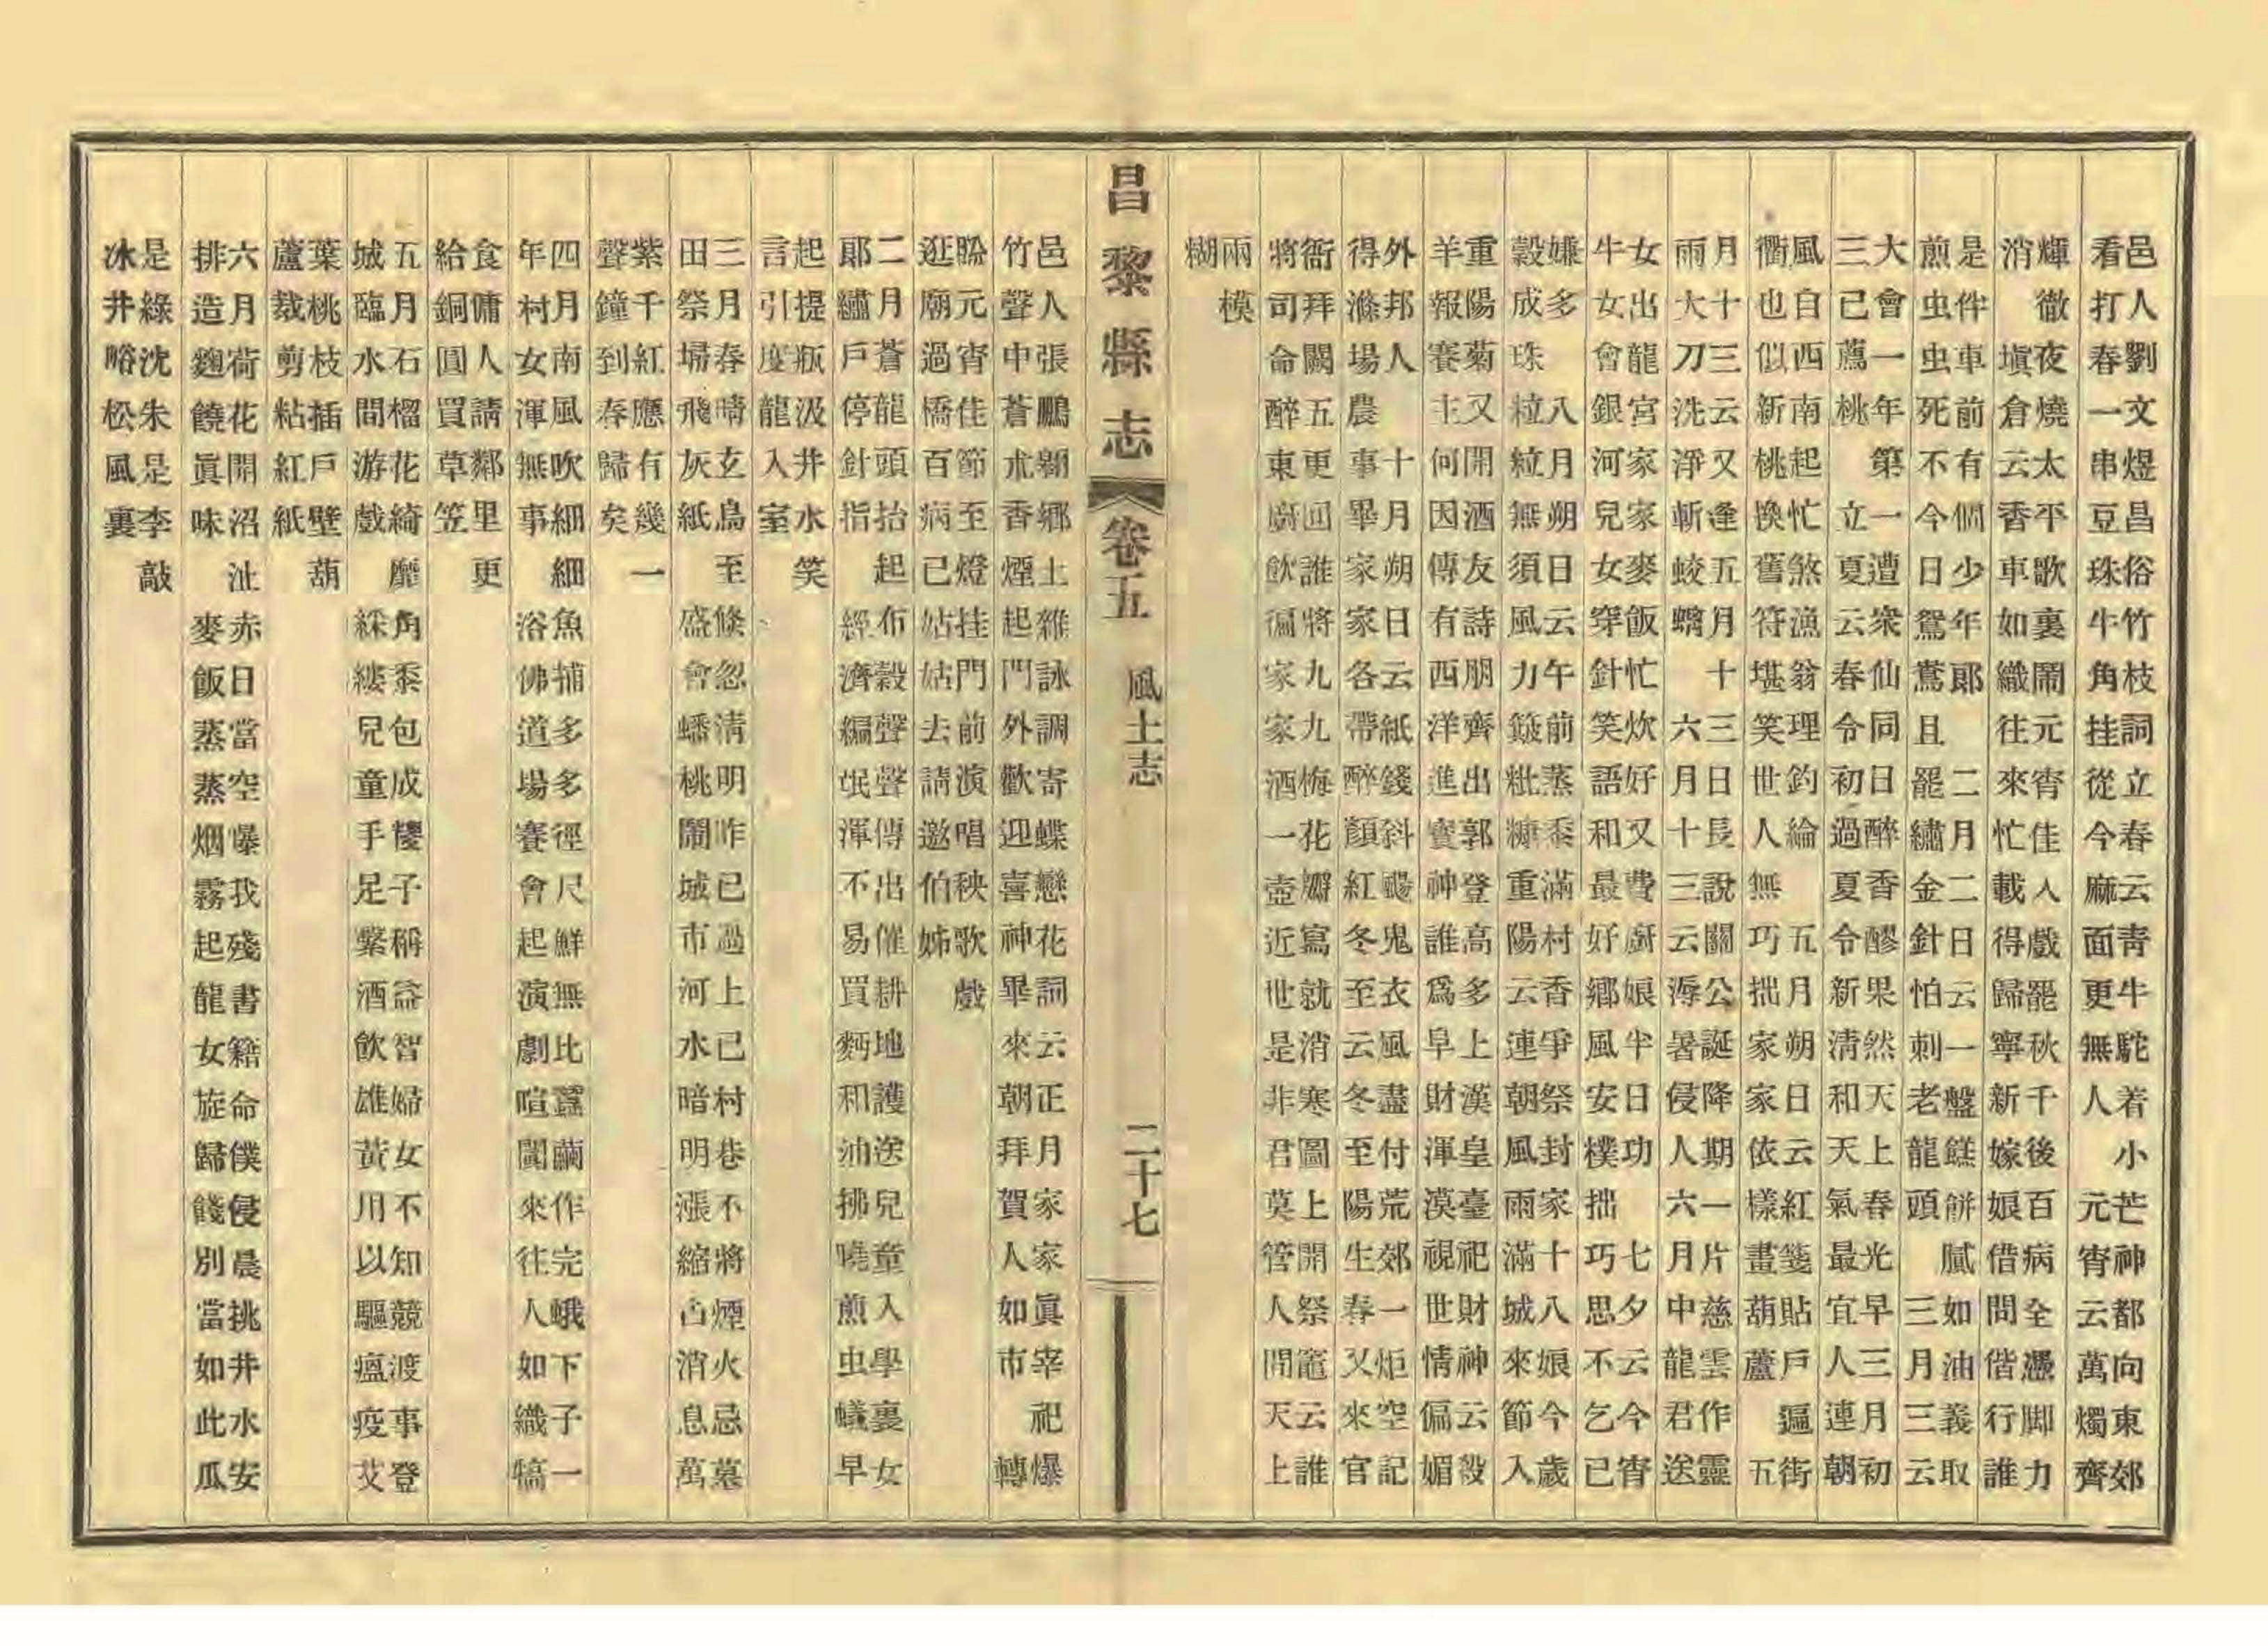 邑人劉文煜昌俗竹枝詞立春云青牛駝着小芒神都向東郊
看打春一串豆珠牛角挂從今麻面更無人　元宵云萬燭齊
輝徹夜燒太平歌裏鬧元宵佳人戲罷秋千後百病全憑脚力
消　塡倉云香車如織往來忙載得歸寧新嫁娘借問偕行誰
是伴車前有個少年郞　二月二日云一盤餻餅膩如油義取
煎虫虫死不今日鴛鴦且罷繡金針怕刺老龍頭　三月三云
大會一年第一遭衆仙同日醉香醪果然天上春光早三月初
三已薦桃　立夏云春令初過夏令新清和天氣最宜人連朝
風自西南起忙煞漁翁理釣綸　五月朔日云紅箋貼戶遍街
衢也似新桃換舊符堪笑世人無巧拙家家依樣畫葫蘆　五
月十三云又逢五月十三日長說關公誕降期一片慈雲作靈
雨大刀洗淨斬蛟螭　六月十三云溽暑侵人六月中龍君送
女出龍宮家家麥飯忙炊好又費厨娘半日功　七夕云今宵
牛女會銀河兒女穿針笑語和最好鄕風安樸拙巧思不乞已
嫌多　八月朔日云午前蒸黍滿村香爭祭封家十八娘今歲
穀成珠粒粒無須風力簸粃糠　重陽云連朝風雨滿城來節入
重陽菊又開酒友詩朋齊出郭登高多上漢皇臺　祀財神云殺
羊報賽主何因傳有西洋進寶神誰爲早財渾漠視世情偏媚
外邦人　十月朔日云紙錢斜颺鬼衣風風盡付荒郊一炬空記
得滌場農事畢家家各帶醉顏紅　冬至云冬至陽生春又來官
衙拜闕五更回誰將九九梅花瓣寫就消寒圖上開　祭竈云誰
將司命醉東廚飲徧家家酒一壺近世是非君莫管人間天上
兩模
糊
昌黎縣志　卷五　風土志　二十七
邑人張鵬翺鄕土雜詠調寄蝶戀花詞云正月家家眞宰祀爆
竹聲中蒼朮香煙起門外歡迎喜神畢來朝拜賀人如市　轉
盼元宵佳節至燈挂門前演唱秧歌戲
逛廟過橋百病已姑姑去請邀伯姊
二月蒼龍頭抬起布穀聲聲傳出催耕地護送兒童入學裏女
郞繡戶停針指　經濟編氓渾不易買麪和油拂曉煎虫蟻早
起提瓶汲井水笑
言引度龍入室
三月春晴玄鳥至倏忽清明昨已過上巳村巷不將煙火忌墓
田祭埽飛灰紙　盛會蟠桃鬧城市河水暗明漲縮凸消息萬
紫千紅應有幾一
聲鐘到春歸矣
四月南風吹細細魚捕多多徑尺鮮無比蠶繭作完蛾下子一
年村女渾無事　浴佛道場賽會起演劇喧闐來往人如織犒
食傭人請鄰里更
給銅圓買草笠
五月石榴花綺靡角黍包成糭子稱益智婦女不知競渡事登
城臨水間游戲　綵縷兒童手足繫酒飲雄黃用以驅瘟疫艾
葉桃枝插戶壁葫
蘆裁剪粘紅紙
六月荷花開沼沚赤日當空曝我殘書籍命僕侵晨挑井水安
排造麯饒眞味　麥飯蒸蒸烟霧起龍女旋歸餞別當如此瓜
是綠沈朱是李敲
冰井峪松風裏